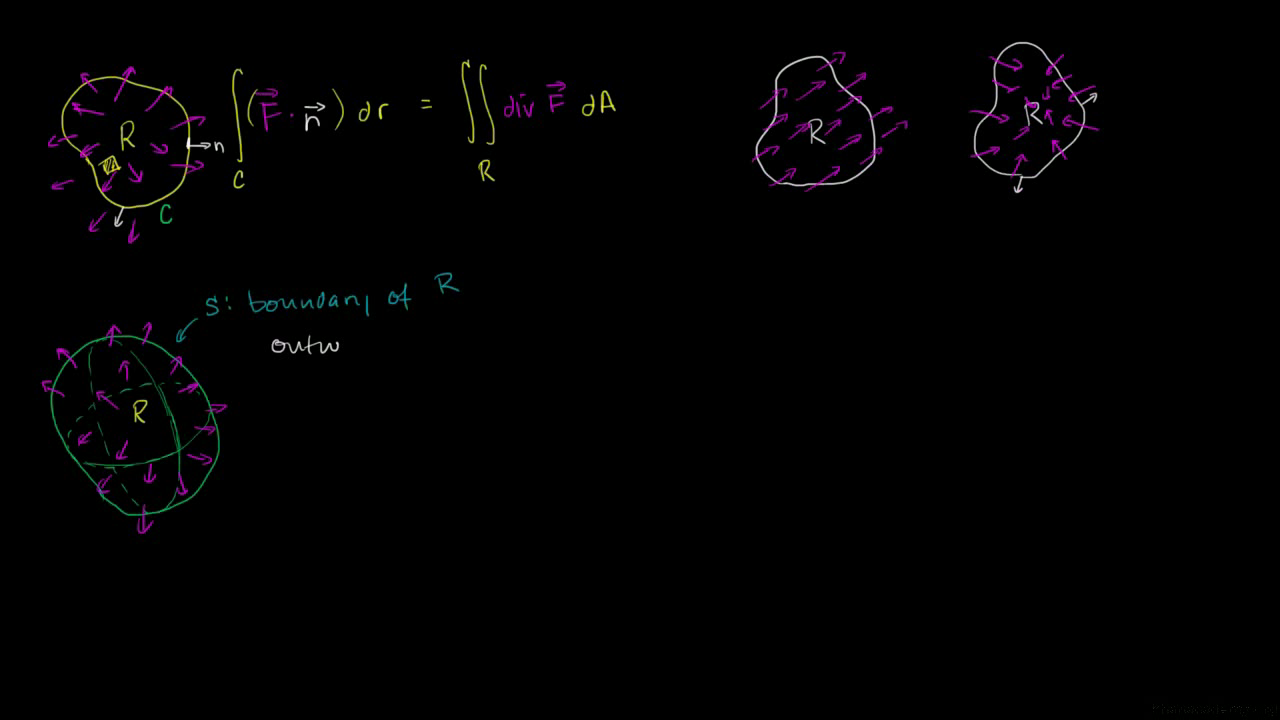 R
n
C
∫_C (F⃗ · n⃗) dr = ∬_R div F⃗ dA
R
R
S: boundary of R
outw
R